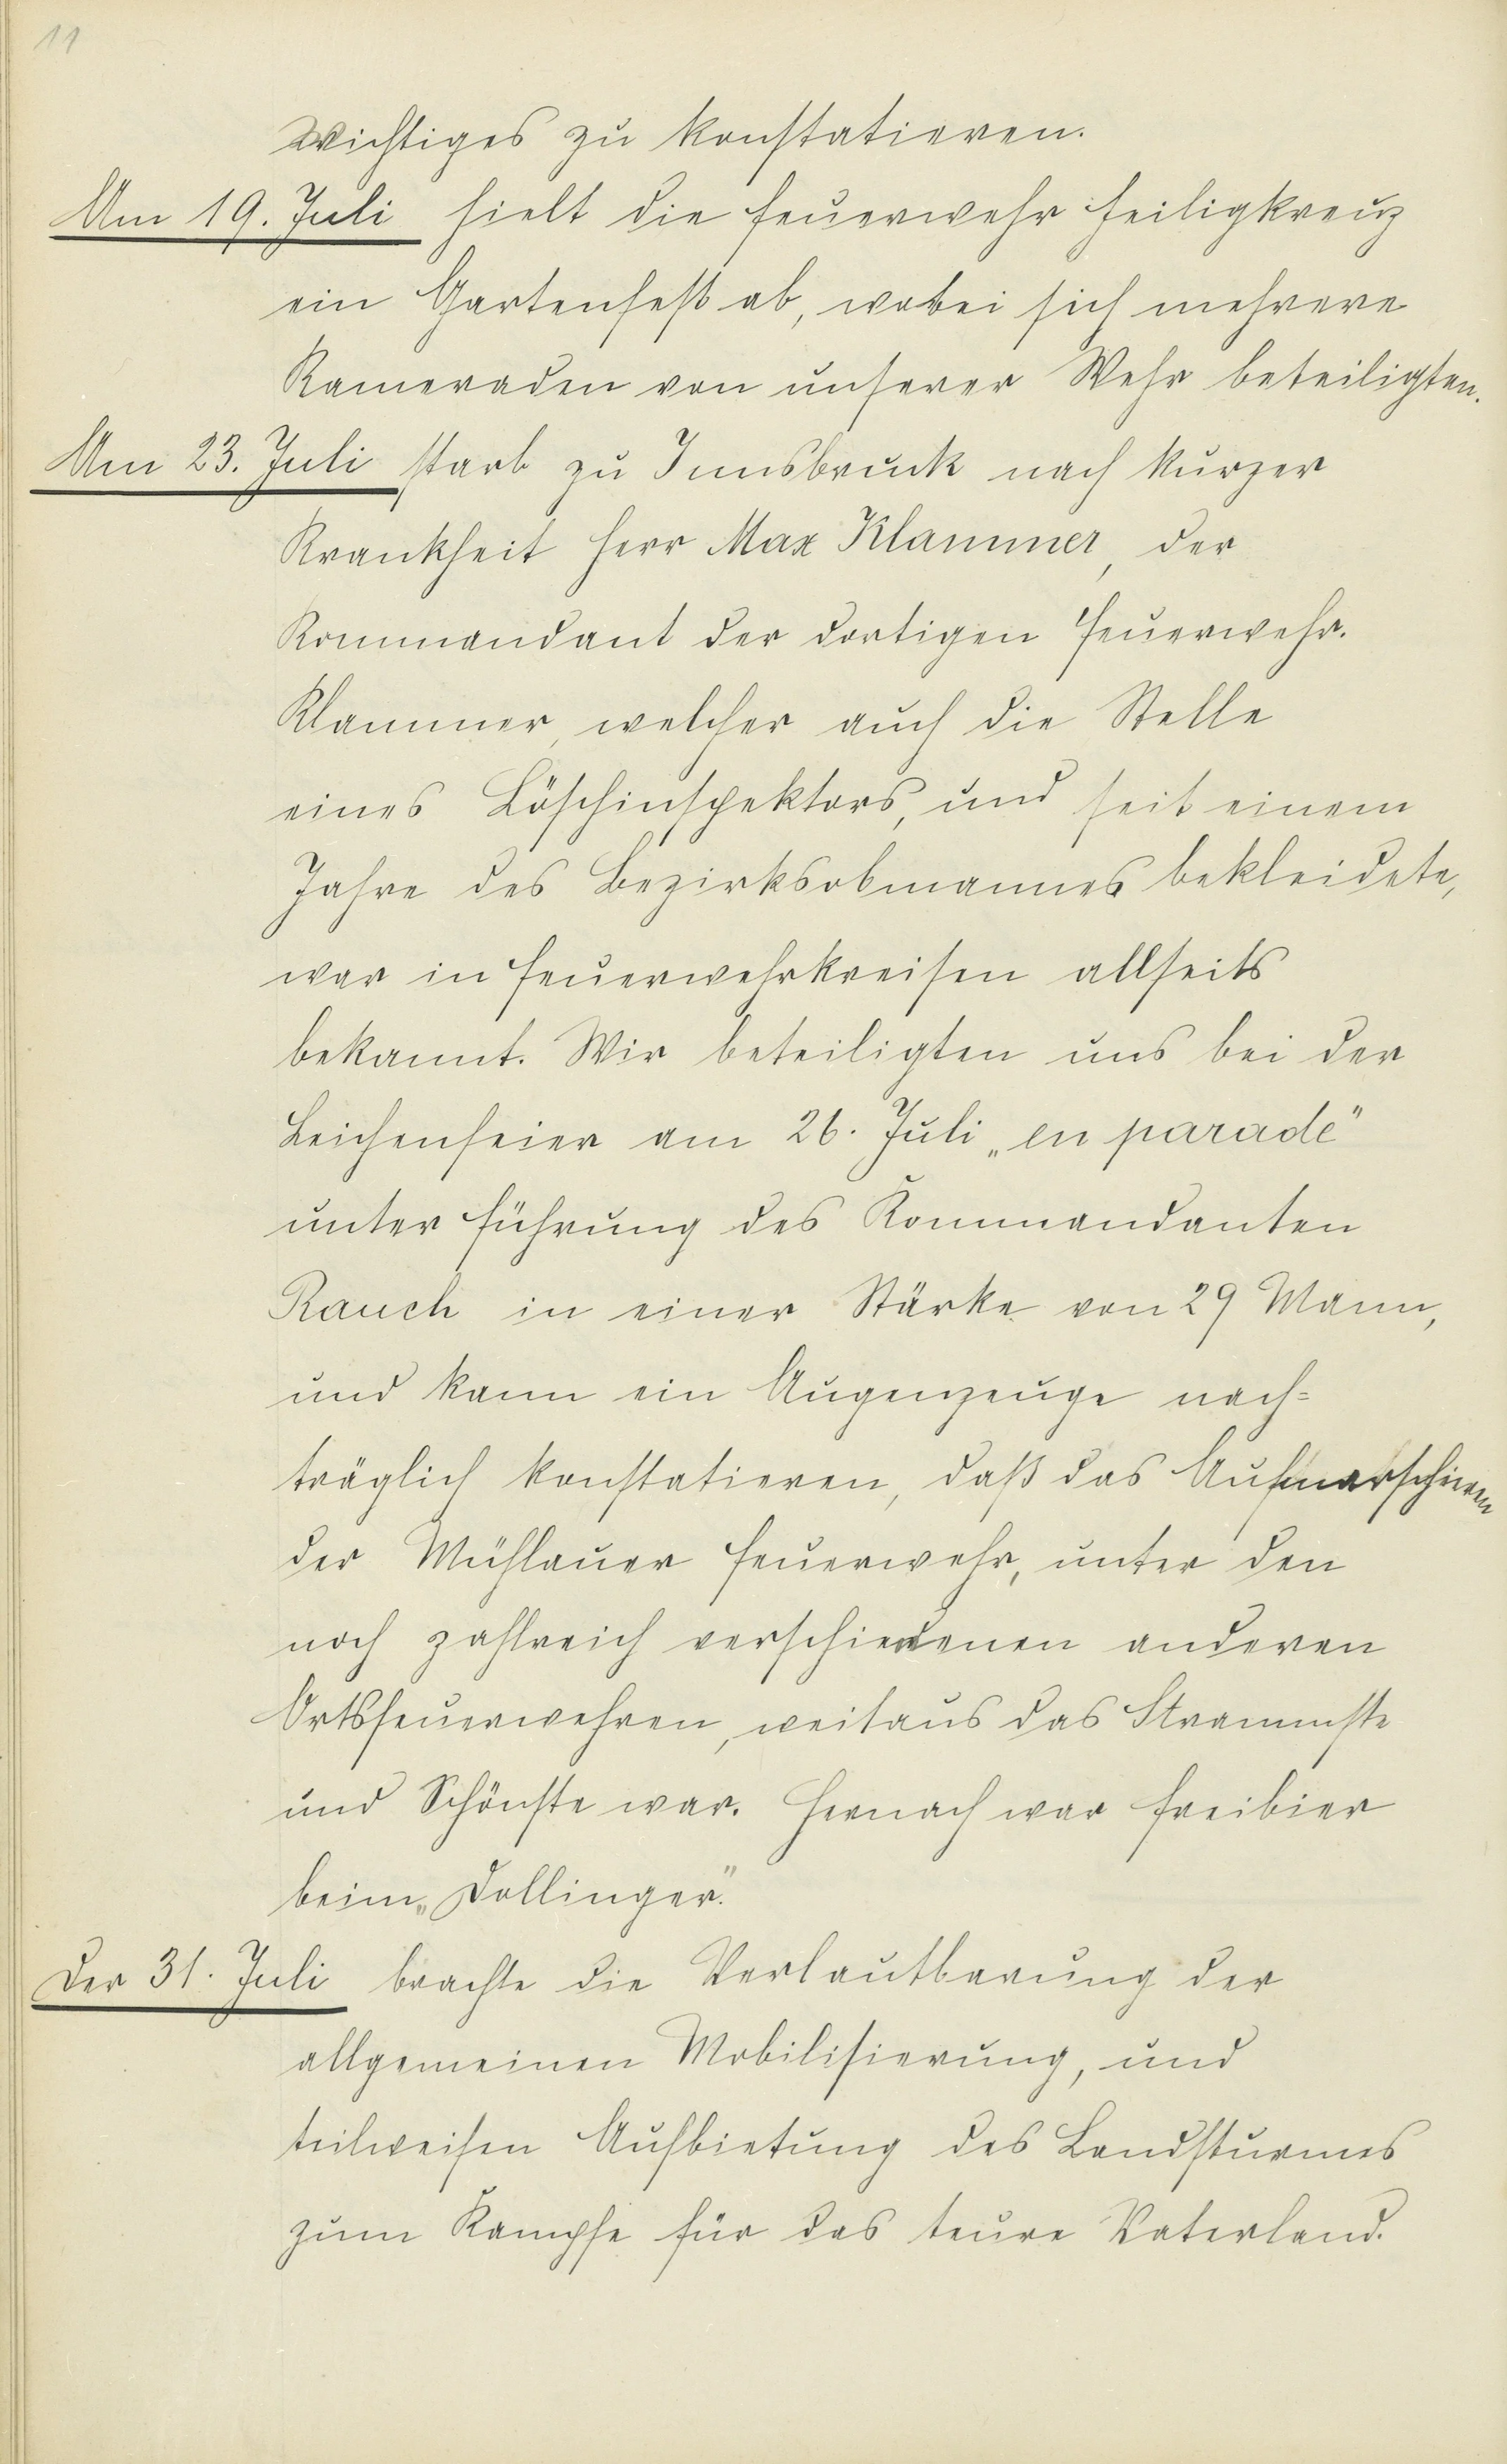 11
Wichtiges zu konstatieren.
Am 19. Juli hielt die Feuerwehr Heiligkreuz
ein Gartenfest ab, wobei sich mehrere
Kameraden von unserer Wehr beteiligten.
Am 23. Juli starb zu Innsbruck nach kurzer
Krankheit Herr Max Klammer, der
Kommandant der dortigen Feuerwehr.
Klammer, welcher auch die Stelle
eines Löschinspektors, und seit einem
Jahre des Bezirksobmannes bekleidete,
war in Feuerwehrkreisen allseits
bekannt. Wir beteiligten uns bei der
Leichenfeier am 26. Juli „en paradé"
unter Führung des Kommandanten
Rauch in einer Stärke von 29 Mann,
und kann ein Augenzeuge nach=
träglich konstatieren, daß das Aufmarschieren
der Mühlauer Feuerwehr, unter den
noch zahlreich verschiedenen anderen
Ortsfeuerwehren, weitaus das Strammste
und Schönste war. Hernach war Freibier
beim „Dollinger."
Der 31. Juli brachte die Verlautbarung der
allgemeinen Mobilisierung, und
teilweisen Aufbietung des Landsturmes
zum Kampfe für das teure Vaterland.